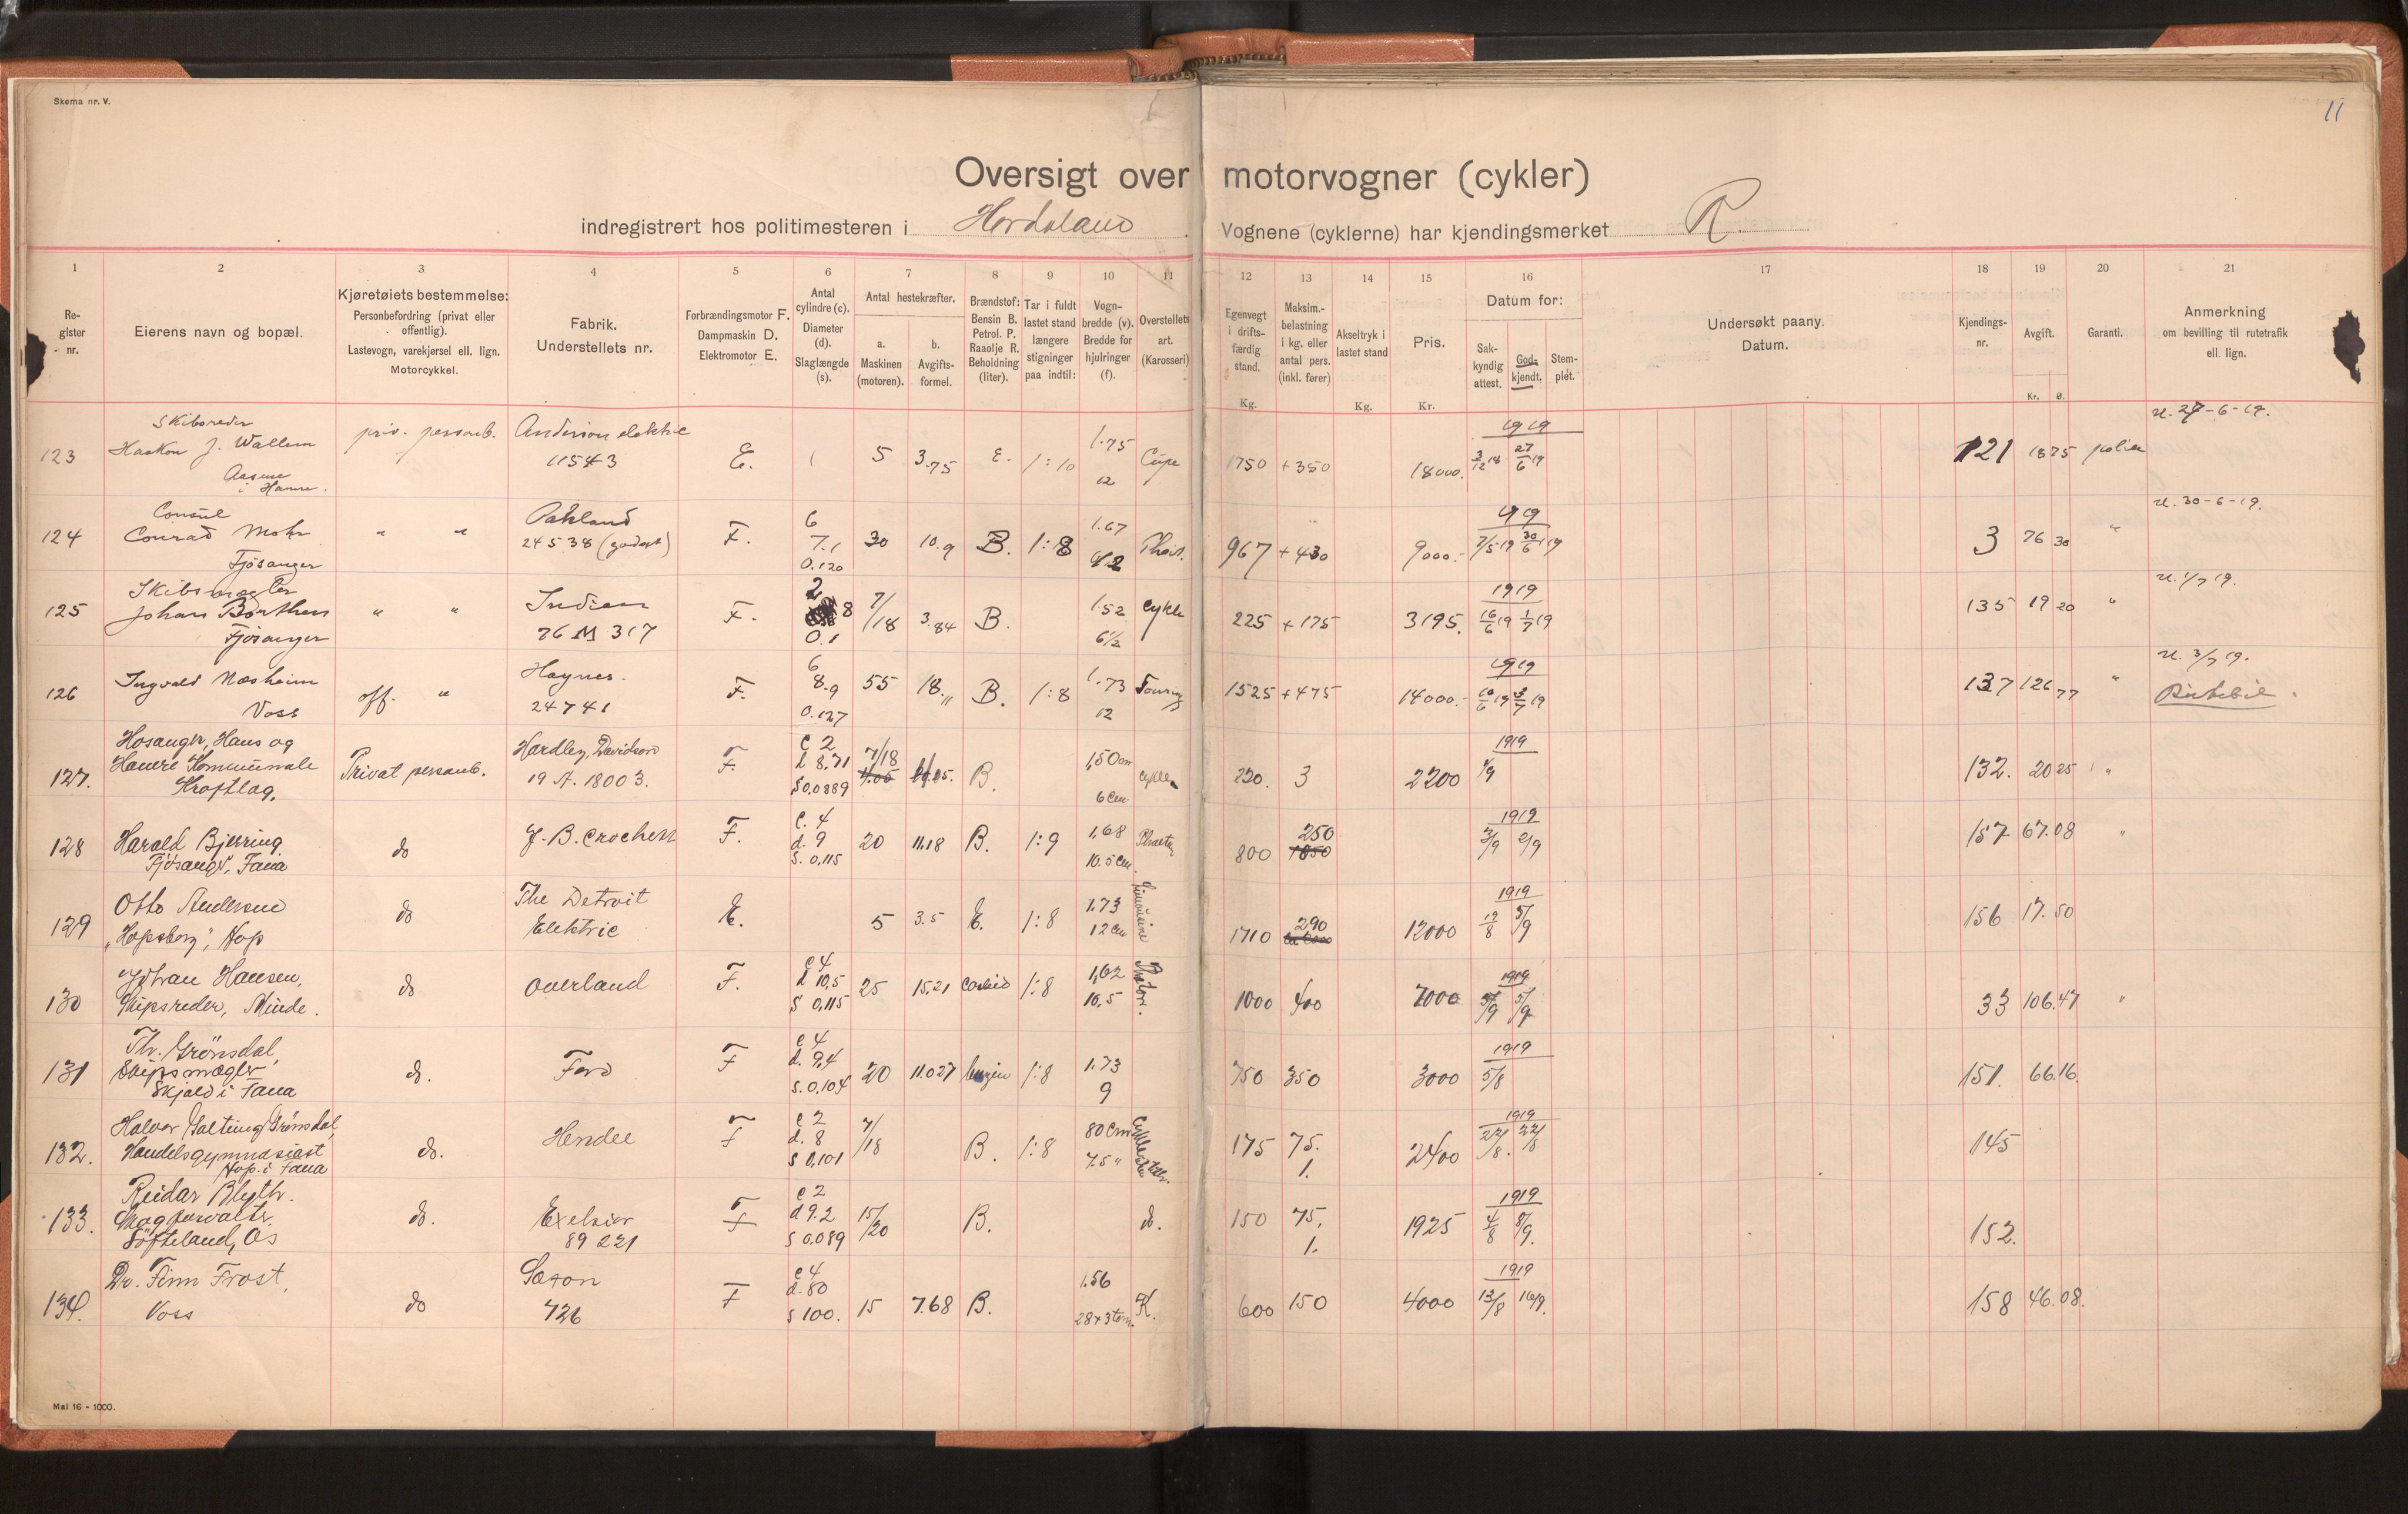 Skema nr. V.
11
Oversigt over motorvogner (cykler)
indregistrert hos politimesteren i Hordaland Vognene (cyklerne) har kjendingsmerket R.
1 2 3 4 5 6 7 8 9 10 11 12 13 14 15 16 17 18 19 20 21
Re-
gister
nr.
Eierens navn og bopæl.
Kjøretøiets bestemmelse:
Personbefordring (privat eller
offentlig).
Lastevogn, varekjørsel ell. lign.
Motorcykkel.
Fabrik.
Understellets nr.
Forbrændingsmotor F.
Dampmaskin D.
Elektromotor E.
Antal
cylindre (c).
Diameter
(d).
Slaglængde
(s).
Antal hestekræfter.
a.
Maskinen
(motoren).
b.
Avgifts-
formel.
Brændstof:
Bensin B.
Petrol. P.
Raaolje R.
Beholdning
(liter).
Tar i fuldt
lastet stand
længere
stigninger
paa indtil:
Vogn-
bredde (v).
Bredde for
hjulringer
(f).
Overstellets
art.
(Karosseri)
Egenvegt
i drifts-
færdig
stand.
Kg.
Maksim.-
belastning
i kg. eller
antal pers.
(inkl. fører)
Akseltryk i
lastet stand
Kg.
Pris.
Kr.
Datum for:
Sak-
kyndig
attest.
God-
kjendt.
Stem-
plet.
Undersøkt paany.
Datum.
Kjendings-
nr.
Avgift.
Kr. Ø.
Garanti.
Anmerkning
om bevilling til rutetrafik
ell. lign.
123
Skibsreder
Haakon J. Wallem
i Hanne.
priv. personb.
Anderson elektric
11543
E. 5 3.75 E. 1:10
1.75
12
Cupe
1750 + 350 18000.
1919
3/12 18 27/6 19
121 18 75 police
u. 27-6-19.
124
Consul
Conrad Mohr
Fjøsanger
" "
Oakland
24538
F.
6
7.1
0.120
30 10.9 B. 1:8
1.67
Phæt.
967 + 430 9000.-
1919
7/5 19 30/6 19
3 76 30 "
u. 30-6-19.
125
Skibsmægler
Johan Børthen
Fjøsanger
" "
Indian
76 M 317
F.
2
8
0.1
7/18 3.84 B.
1.52
6 1/2
cykle
225 + 175 3195.
1919
16/6 19 1/7 19
135 19 20 "
u. 1/7 19.
126
Ingvald Næsheim
Voss
off. "
Haynes.
24741
F.
6
8.9
0.127
55 18.11 B. 1:8
1.73
12
Touring
1525 + 475 14000.-
1919
10/6 19 3/7 19
137 126 77 "
u. 3/7 19.
Rutebil.
127.
Hosanger, Haus og
Hamre Kommunale
Kraftlag.
Privat personb.
Hardley Davidson
19 A. 18003.
F.
C 2
d 8,71
S 0.0889
7/18
4.05
B.
1,50 cm
6 cm
cykle
220. 3 2200
1919
1/9
132. 20 25 "
128
Harald Bjerring
Fjøsanger, Fana
do
J. B. Crochen
F.
C. 4
d. 9
S. 0,115
20 11.18 B. 1:9
1,68
10.5 cm.
Phaeton
800
250
1050
1919
3/9 2/9
157 67.08 "
129
Otto Andersen
"Hopsborg", Hop
do
The Detroit
Elektric
E. 5 3.5 E. 1:8
1.73
12 cm
Limousine
1710
290
12000
1919
12/8 5/9
156 17.50
130
Johan Hansen,
Skipsreder, Minde.
do
Overland
F.
C 4
d 10,5
S 0,115
25 15.21 1:8
1,62
10,5
1000 400 7000
1919
5/9 5/9
33 106.47 "
131
Th. Grønsdal,
Skipsmægler
Skjold i Fana
do.
Ford
F
C 4
d. 9,4
S. 0,104
20 11.027 benzin 1:8
1.73
9
750 350 3000
1919
5/8
151. 66.16.
132.
Halvor Salting Grønsdal,
Handelsgymnasiast
Hop i Fana
do.
Hendee
F
C 2
d. 8
S 0,101
7/18 B. 1:8
80 cm
7.5 "
175 75.
1.
2400
1919
22/8. 22/8
145
133.
Reidar Blyth.
Skogforvalter
Søfteland, Os
do.
Exelsior
89 221
F
C 2
d 9.2
S 0.089
15/20 B. do.
150 75,
1.
1925
1919
4/8 8/9.
152.
134.
Dr. Finn Frost,
Voss
do
Saxon
726
F
C 4
d. 80
S 100.
15 7.68 B.
1.56
28x3 tom.
K.
600 150 4000
1919
13/8 16/9.
158 46.08.
Mai 16 - 1000.